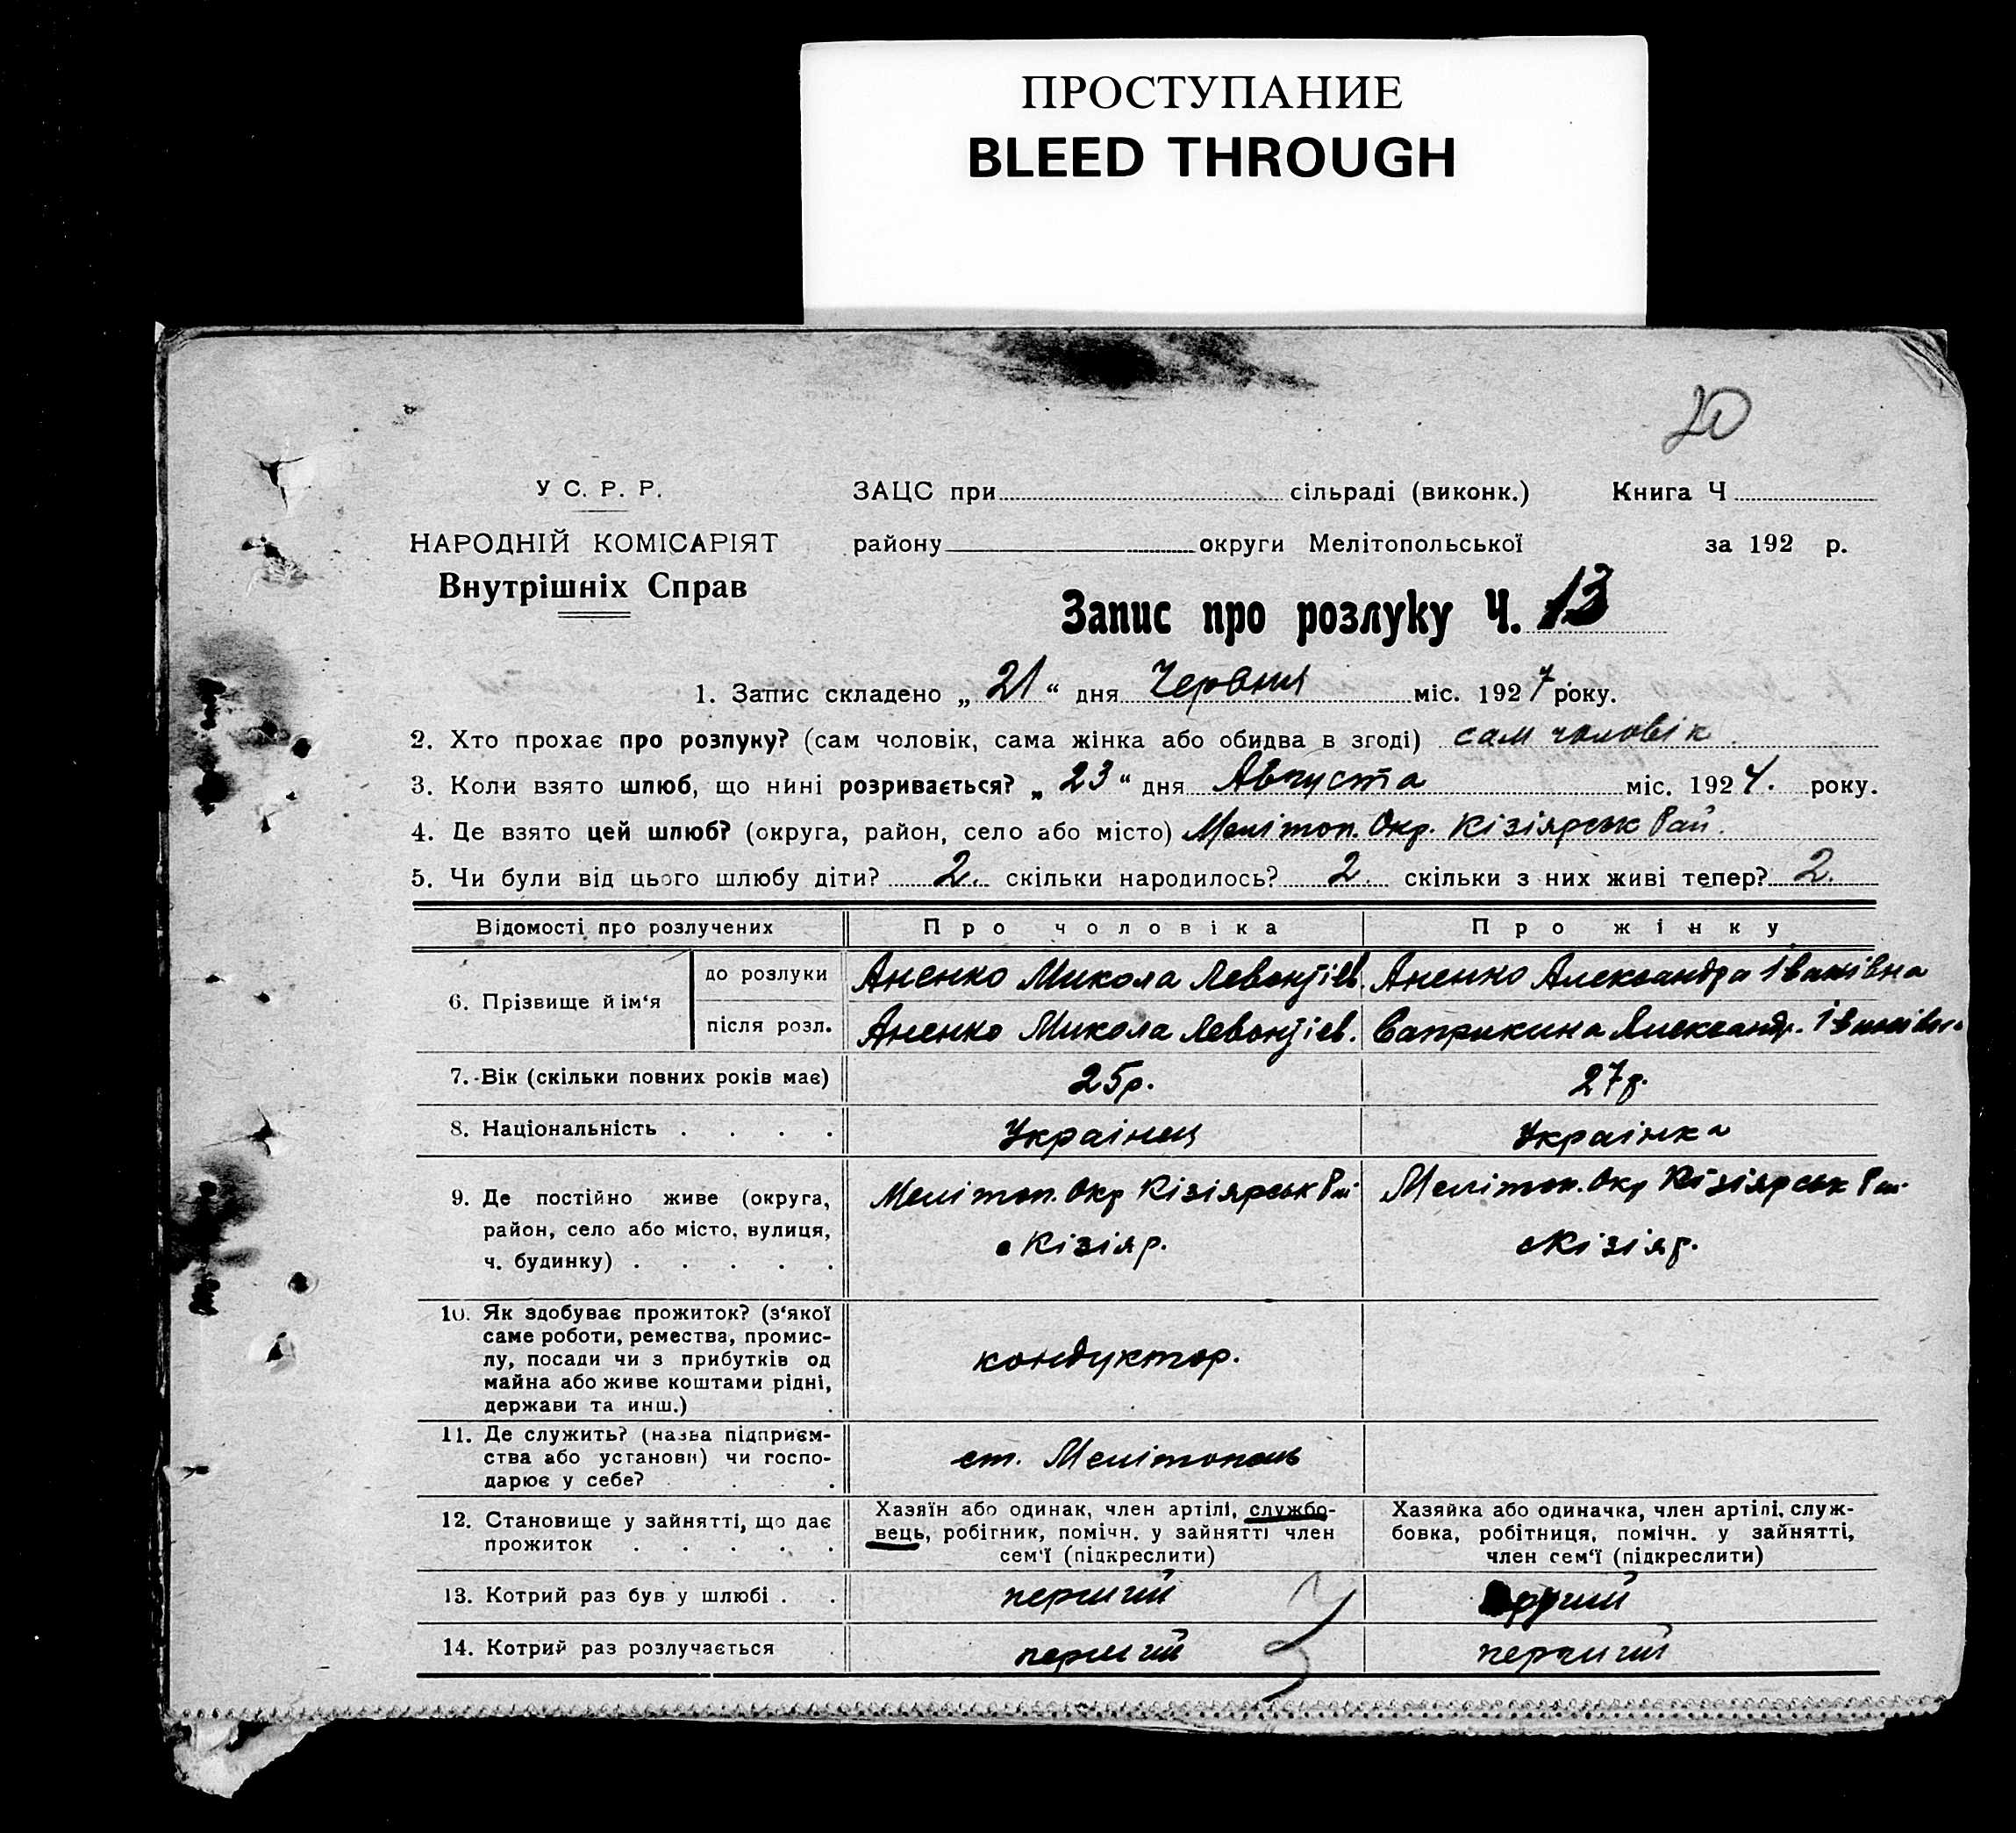 ПРОСТУПАНИЕ
BLEED THROUGH
20
У С. Р. Р.
НАРОДНІЙ КОМІСАРІЯТ
Внутрішніх Справ
ЗАЦС при сільраді (виконк.) Книга Ч
району округи Мелітопольської за 192 р.
Запис про розлуку Ч. 13
1. Запис складено „ 21 “ дня Червня міс. 1927 року.
2. Хто прохає про розлуку? (сам чоловік, сама жінка або обидва в згоді) сам чоловік
3. Коли взято шлюб, що нині розривається? „ 23 “ дня Августа міс. 1924. року.
4. Де взято цей шлюб? (округа, район, село або місто) Мелітоп. Окр. Кізіярськ Рай.
5. Чи були від цього шлюбу діти? 2. скільки народилось? 2. скільки з них живі тепер? 2.
Відомості про розлучених Про чоловіка Про жінку
6. Прізвище й ім‘я
до розлуки Аненко Микола Левонтіев. Аненко Александра Іванівна
після розл. Аненко Микола Левонтіев. Саприкина Александр. Іванівна
7. Вік (скільки повних років має) 25р. 27р.
8. Національність . . . . Украінец Украінка
9. Де постійно живе (округа,
район, село або місто, вулиця,
ч. будинку) . . . . .
Мелітоп. Окр Кізіярськ Рай
с Кізіяр.
Мелітоп. Окр Кізіярськ Рай
с Кізіяр.
10. Як здобуває прожиток? (з‘якої
саме роботи, ремества, промис-
лу, посади чи з прибутків од
майна або живе коштами рідні,
держави та инш.) .
кондуктор.
11. Де служить? (назва підприєм-
ства або установи) чи госпо-
дарює у себе? . . .
ст. Мелітополь
12. Становище у зайнятті, що дає
прожиток . . . . .
Хазяїн або одинак, член артілі, службо-
вець, робітник, помічн. у зайнятті член
сем‘ї (підкреслити)
Хазяйка або одиначка, член артілі, служ-
бовка, робітниця, помічн. у зайнятті,
член сем‘ї (підкреслити)
13. Котрий раз був у шлюбі . . перший
14. Котрий раз розлучається . перший перший